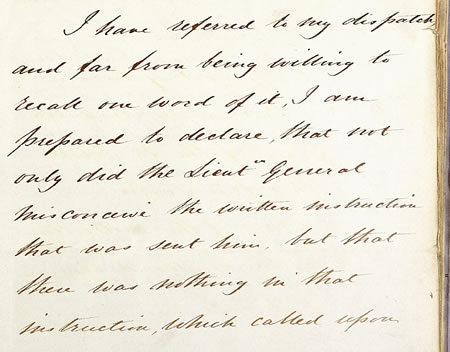 I have referred to my dispatch,
and far from being willing to
recall one word of it, I am
prepared to declare, that not
only did the Lieut.n General
misconceive the written instruction
that was sent him, but that
there was nothing in that
instruction, which called upon